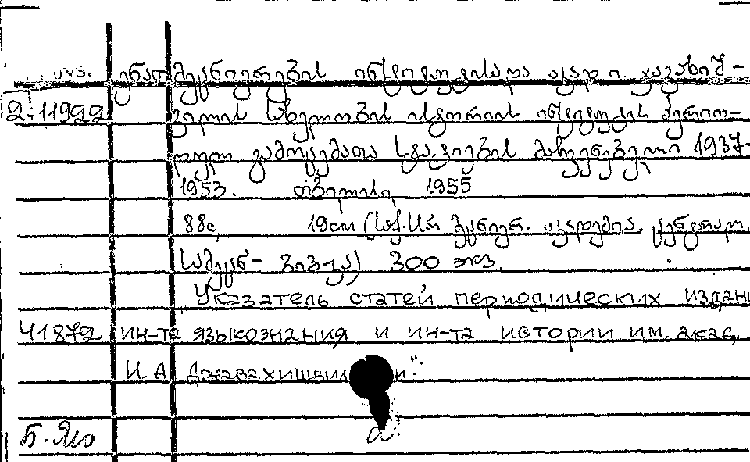 ენათმეცნიერების ინსტიტუტისა და აკად. ი. ჯავახიშ-
2-11922 ვილის სახელობის ისტორიის ინსტიტუტის პერიო-
დულ გამოცემათა სტატიების მაჩვენებელი 1937-
1953. თბილისი, 1955
88с, 19см (საქ. სსრ მეცნიერ. აკადემია. ცენტრალ.
სამეცნ- ბიბ-კა) 300 ეგზ.
Указатель статей периодических издани
41872 ин-та языкознания и ин-та истории им. акад.
И. А. Джавахишвили".